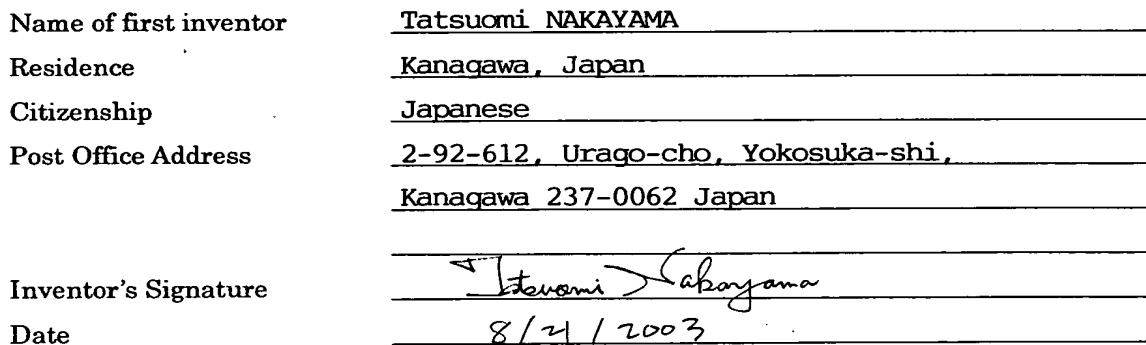 Name of first inventor Tatsuomi NAKAYAMA
Residence Kanagawa, Japan
Citizenship Japanese
Post Office Address 2-92-612, Urago-cho, Yokosuka-shi,
Kanagawa 237-0062 Japan
Inventor's Signature Tatsuomi Nakayama
Date 8/21/2003